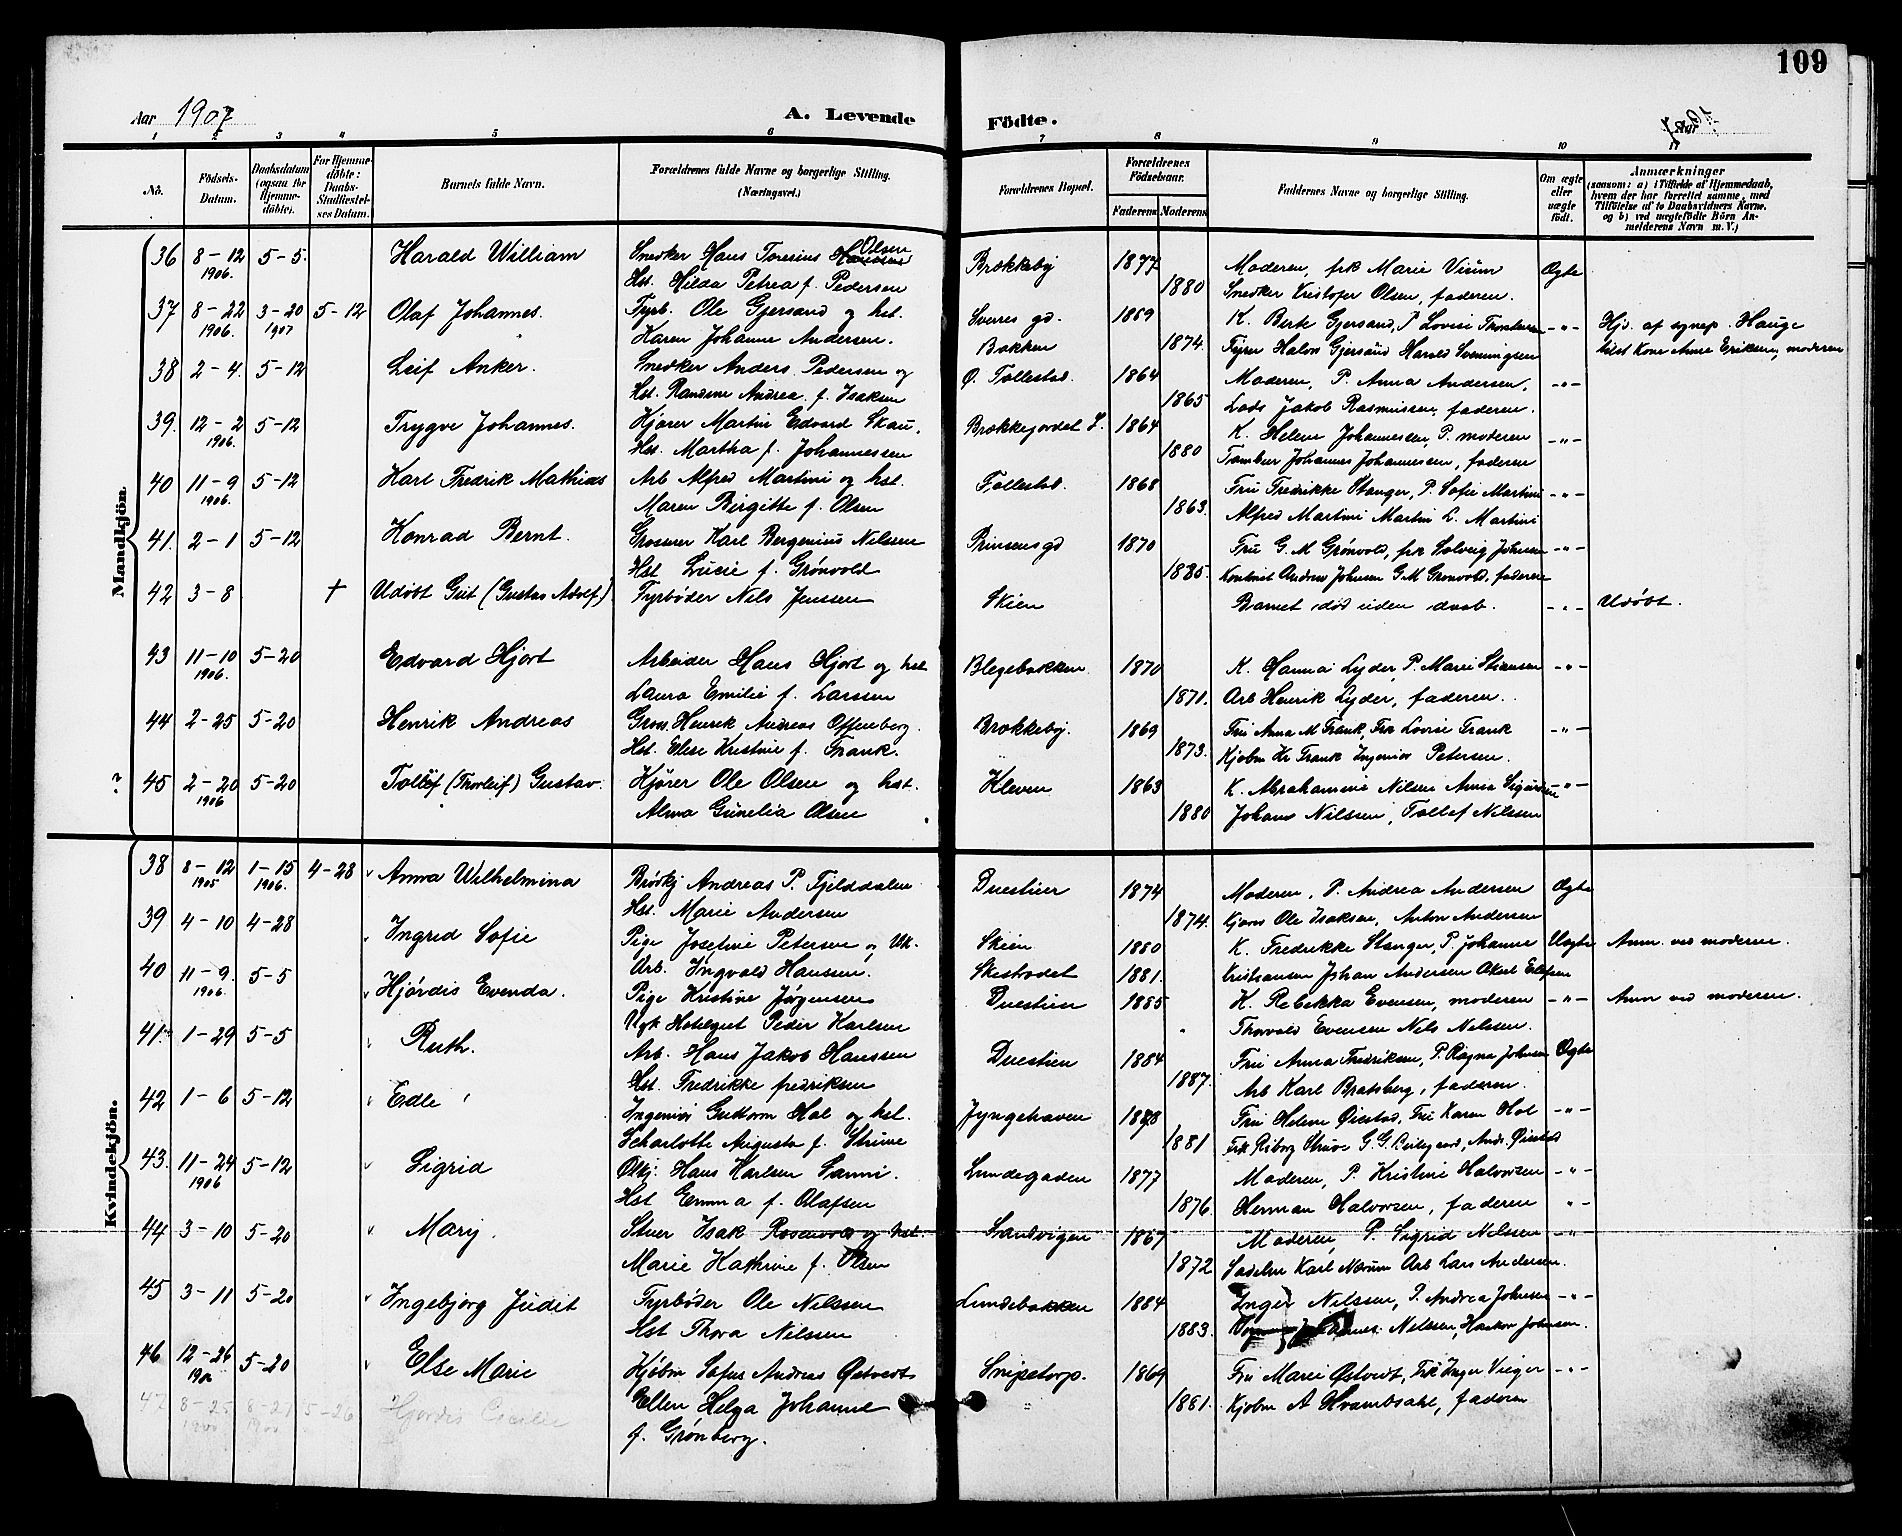 109
Aar 1907 A. Levende Födte. Aar 1907
1 2 3 4 5 6 7 8 9 10 11
No. Födsels-Datum. Daabsdatum (ogsaa for Hjemme-döbte). For Hjemme-döbte: Daabs-Stadfæstel-ses Datum. Barnets fulde Navn. Forældrenes fulde Navne og borgerlige Stilling. (Næringsvei.) Forældrenes Bopæl. Forældrenes Födselsaar. Faderens Moderens Faddernes Navne og borgerlige Stilling. Om ægte eller uægte födt. Anmærkninger (saasom: a) i Tilfælde af Hjemmedaab, hvem der har forrettet samme, med Tilföielse af to Daabsvidners Navne. og b) ved uægtefödte Börn An-melderens Navn m. V.)
Mandkjön.
36 8-12 1906. 5-5. Harald William Snedker Hans Toresius Hansens Olsen Brekkeby 1877 Moderen, frk Marie Visum Ægte
Hst. Hilda Petrea f. Pedersen 1880 Snedker Kristofer Olsen, faderen.
37 8-22 1906. 3-20 1907 5-12 Olaf Johannes. Fyrb. Ole Gjersand og hst. Sverres gd. 1869 K. Berte Gjersand, P Lovise -"- Hjd. af sognep. Hauge
Karen Johanne Andersen. Bakken 1874. Halvor Gjersand Harald Svenningsen tilst Kone Anne Eriksen, moderen
38 2-4. 5-12 Leif Anker. Snedker Anders Pedersen og Ø. Follestad. 1864 Moderen, P. Anna Andersen, -"-
Hst. Randine Andrea f. Isaksen 1865 Lods Jakob Rasmussen, faderen.
39. 12-2 1906. 5-12 Trygve Johannes. Kjører Martin Edvard Skau, Brekkejordet 1864 K. Helene Johannessen, P. moderen -"-
Hst. Martha f. Johannessen 1880 Tømmer Johannes Johannessen, faderen
40 11-9 1906. 5-12 Karl Fredrik Mathias Arb Alfred Martini og hst. Follestad. 1868 Fru Fredrikke Stanger, P. Sofie Martini -"-
Maren Birgitte f. Olsen 1863. Alfred Martini Martin L. Martini
41. 2-1 5-12 Konrad Bernt. Grosserer Karl Bergenius Nilssen Prinsensgd 1870 Fru G. M Grønvold, frk Solveig Johnsen -"-
Hst Lucie f. Grønvold 1885. Kontorist Andreas Johnsen G M Grønvold, faderen
42 3-8 † Udøbt Gut (Gustav Adolf) Fyrbøder Nils Jenssen Skien Barnet død uden daab. -"- Udøbt.
43 11-10 1906. 5-20 Edvard Hjort Arbeider Hans Hjort og hst Blegebakken 1870 K. Hanna Lyder, P. Marie Stiansen -"-
Laura Emilie f. Larssen 1871. Arb Henrik Lyder, faderen.
44 2-25 5-20 Henrik Andreas Gros. Henrik Andreas Offenberg. Brekkeby. 1869 Fru Anna M Frank, Frk Lovise Frank -"-
Hst. Elise Kristine f. Frank. 1873. Kjøbm Kr Frank Ingeniør Petersen.
? 45 2-20 1906 5-20 Tollef (Thorleif) Gustav. Kjører Ole Olsen og hst. Kleven 1863 K. Abrahamine Nilsen Anna Sigurdsen -"-
Alma Gunelia Olsen 1880 Johans Nilssen, Tollef Nilssen
Kvindekjön.
38 8-12 1905 1-15 1906. 4-28 Anna Wilhelmina Andreas P. Fjelddalen Duestien 1874 Moderen, P. Andrea Andersen Ægte
Hst. Marie Andersen 1874. Kjører Ole Isaksen, Anton Andersen
39 4-10 4-28 Ingrid Sofie Pige Josefine Petersen og Uk. Skien 1880 K. Fredrikke Stanger, P. Johanne Uægte Anm. ved moderen.
Arb. Ingvald Hanssen. Skistredet 1881. Kristiansen Johan Andersen Okarl Ellefsen
40 11-9. 1906. 5-5 Hjørdis Evenda. Pige Kristine Jørgensen Duestien 1885 K. Rebekka Evensen, moderen -"- Anm ved moderen.
Ugk Hotelgut Peder Karlsen " Thorvald Evensen Nils Nilssen.
41 1-29 5-5 Ruth. Arb. Hans Jakob Hanssen Duestien 1884 Fru Anna Fredriksen, P. Ragna Johnsen Ægte
Hst. Fredrikke fredriksen 1887. Arb Karl Bratsberg, faderen.
42 1-6 5-12 Edle Ingeniør Guttorm Hol og hst. Lyngehaven 1878 Fru Helene Øistad, Fru Karen Hol -"-
Scharlotte Augusta f. Struve 1881 Frk Riborg Struve G. G. Andr. Øistad
43. 11-24 1906 5-12 Sigrid Hans Karlsen Sanni. Lundegaden 1877 Moderen, P. Kristine Halvorsen -"-
Hst Emma f. Olafsen 1876. Herman Halvorsen, faderen -"-
44 3-10 5-20 Mary. Stuer Isak Rosenvold og hst. Landvigen 1867 Moderen, P. Sigrid Nilssen -"-
Marie Kathrine f. Olsen 1872 Sadelm Karl Nærum Arb Lars Andersen.
45 3-11 5-20 Ingebjørg Judit Fyrbøder Ole Nilssen Lundebakken 1884 Inger Nilssen, P. Andrea Johnsen -"-
Hst Thora Nilssen 1883. Johannes Nilssen, Haakon Johnsen.
46 12-26 5-20 Else Marie Kjøbm Sofus Andreas Østvedt Snipetorp. 1869 Fru Marie Østvedt, Frk Inger Vieger -"-
Ellen Helga Johanne 1881. Kjøbm A Kvambsahl, faderen
f. Grønberg.
47 8-25 8-27 5-26 Hjørdis Cecilie